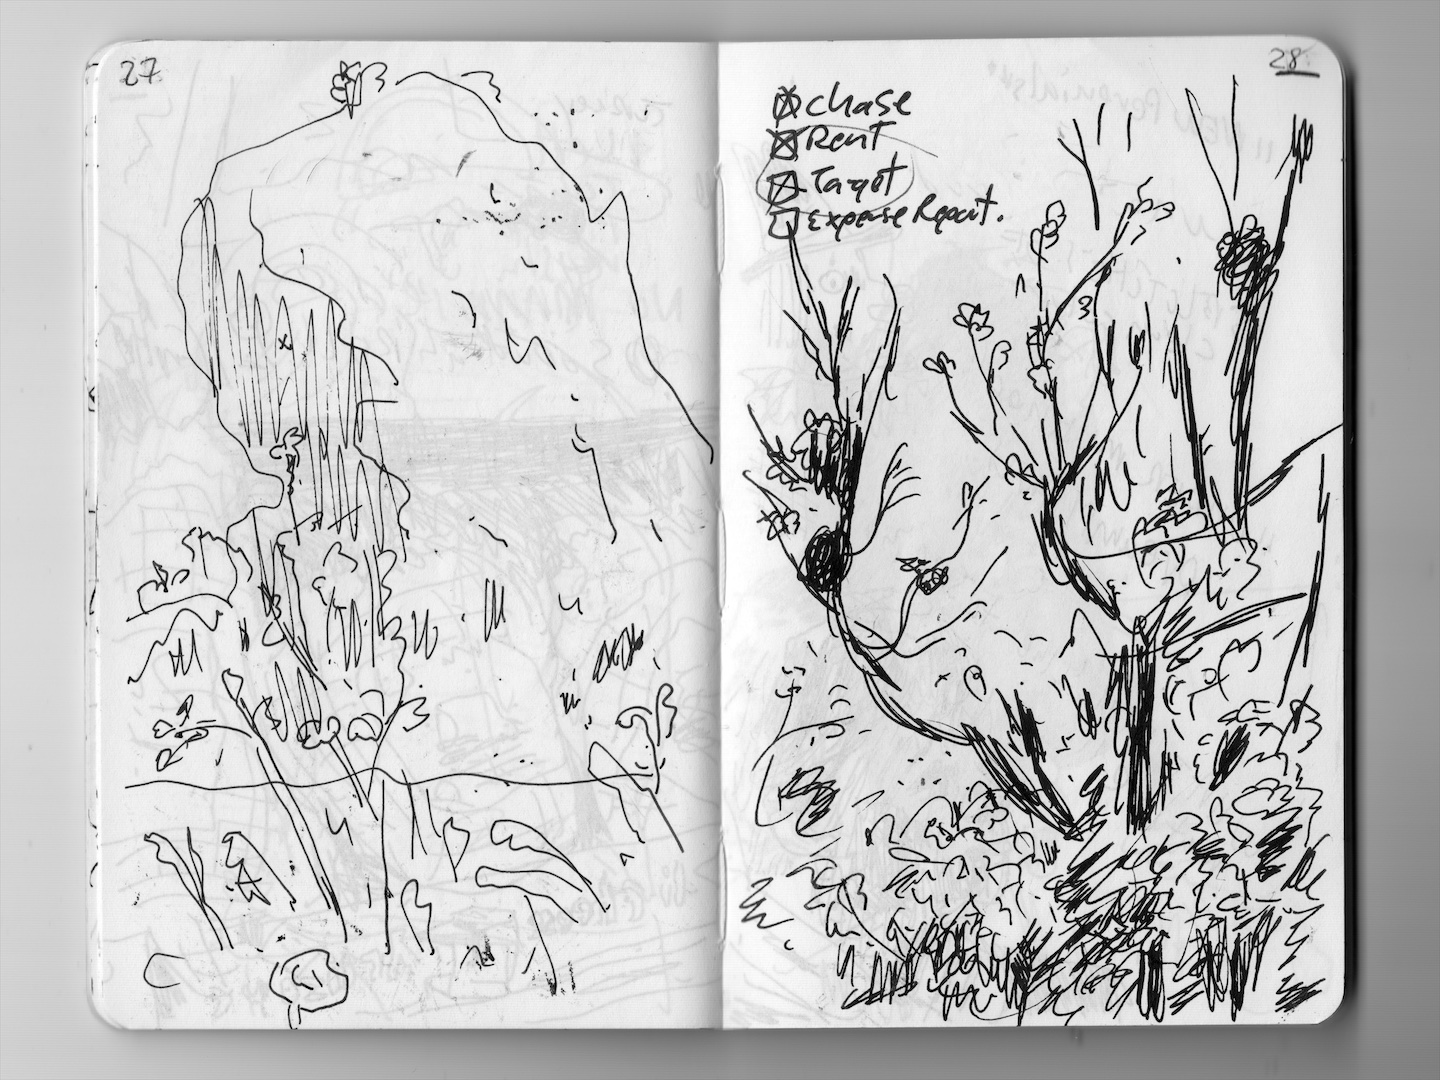 27
28
chase
Rent
Target
Expense Report.